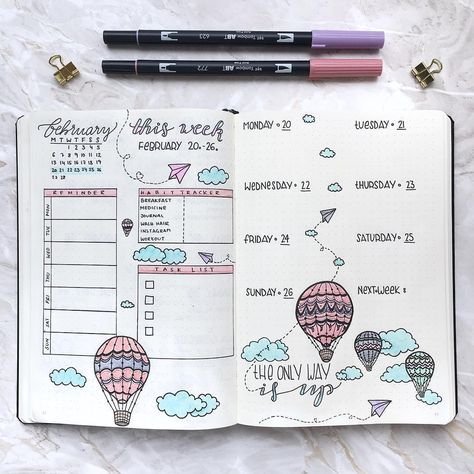 Tombow ABT 623
Tombow ABT 772
February
M T W T F S S
1 2 3 4 5
6 7 8 9 10 11 12
13 14 15 16 17 18 19
20 21 22 23 24 25 26
27 28
this week
FEBRUARY 20-26.
REMINDER
MON
TUE
WED
THU
FRI
SAT
SUN
HABIT TRACKER
BREAKFAST
MEDICINE
JOURNAL
WASH HAIR
INSTAGRAM
WORKOUT
TASK LIST
MONDAY • 20
TUESDAY • 21
WEDNESDAY • 22
THURSDAY • 23
FRIDAY • 24
SATURDAY • 25
SUNDAY • 26
NEXT WEEK :
THE ONLY WAY
is up